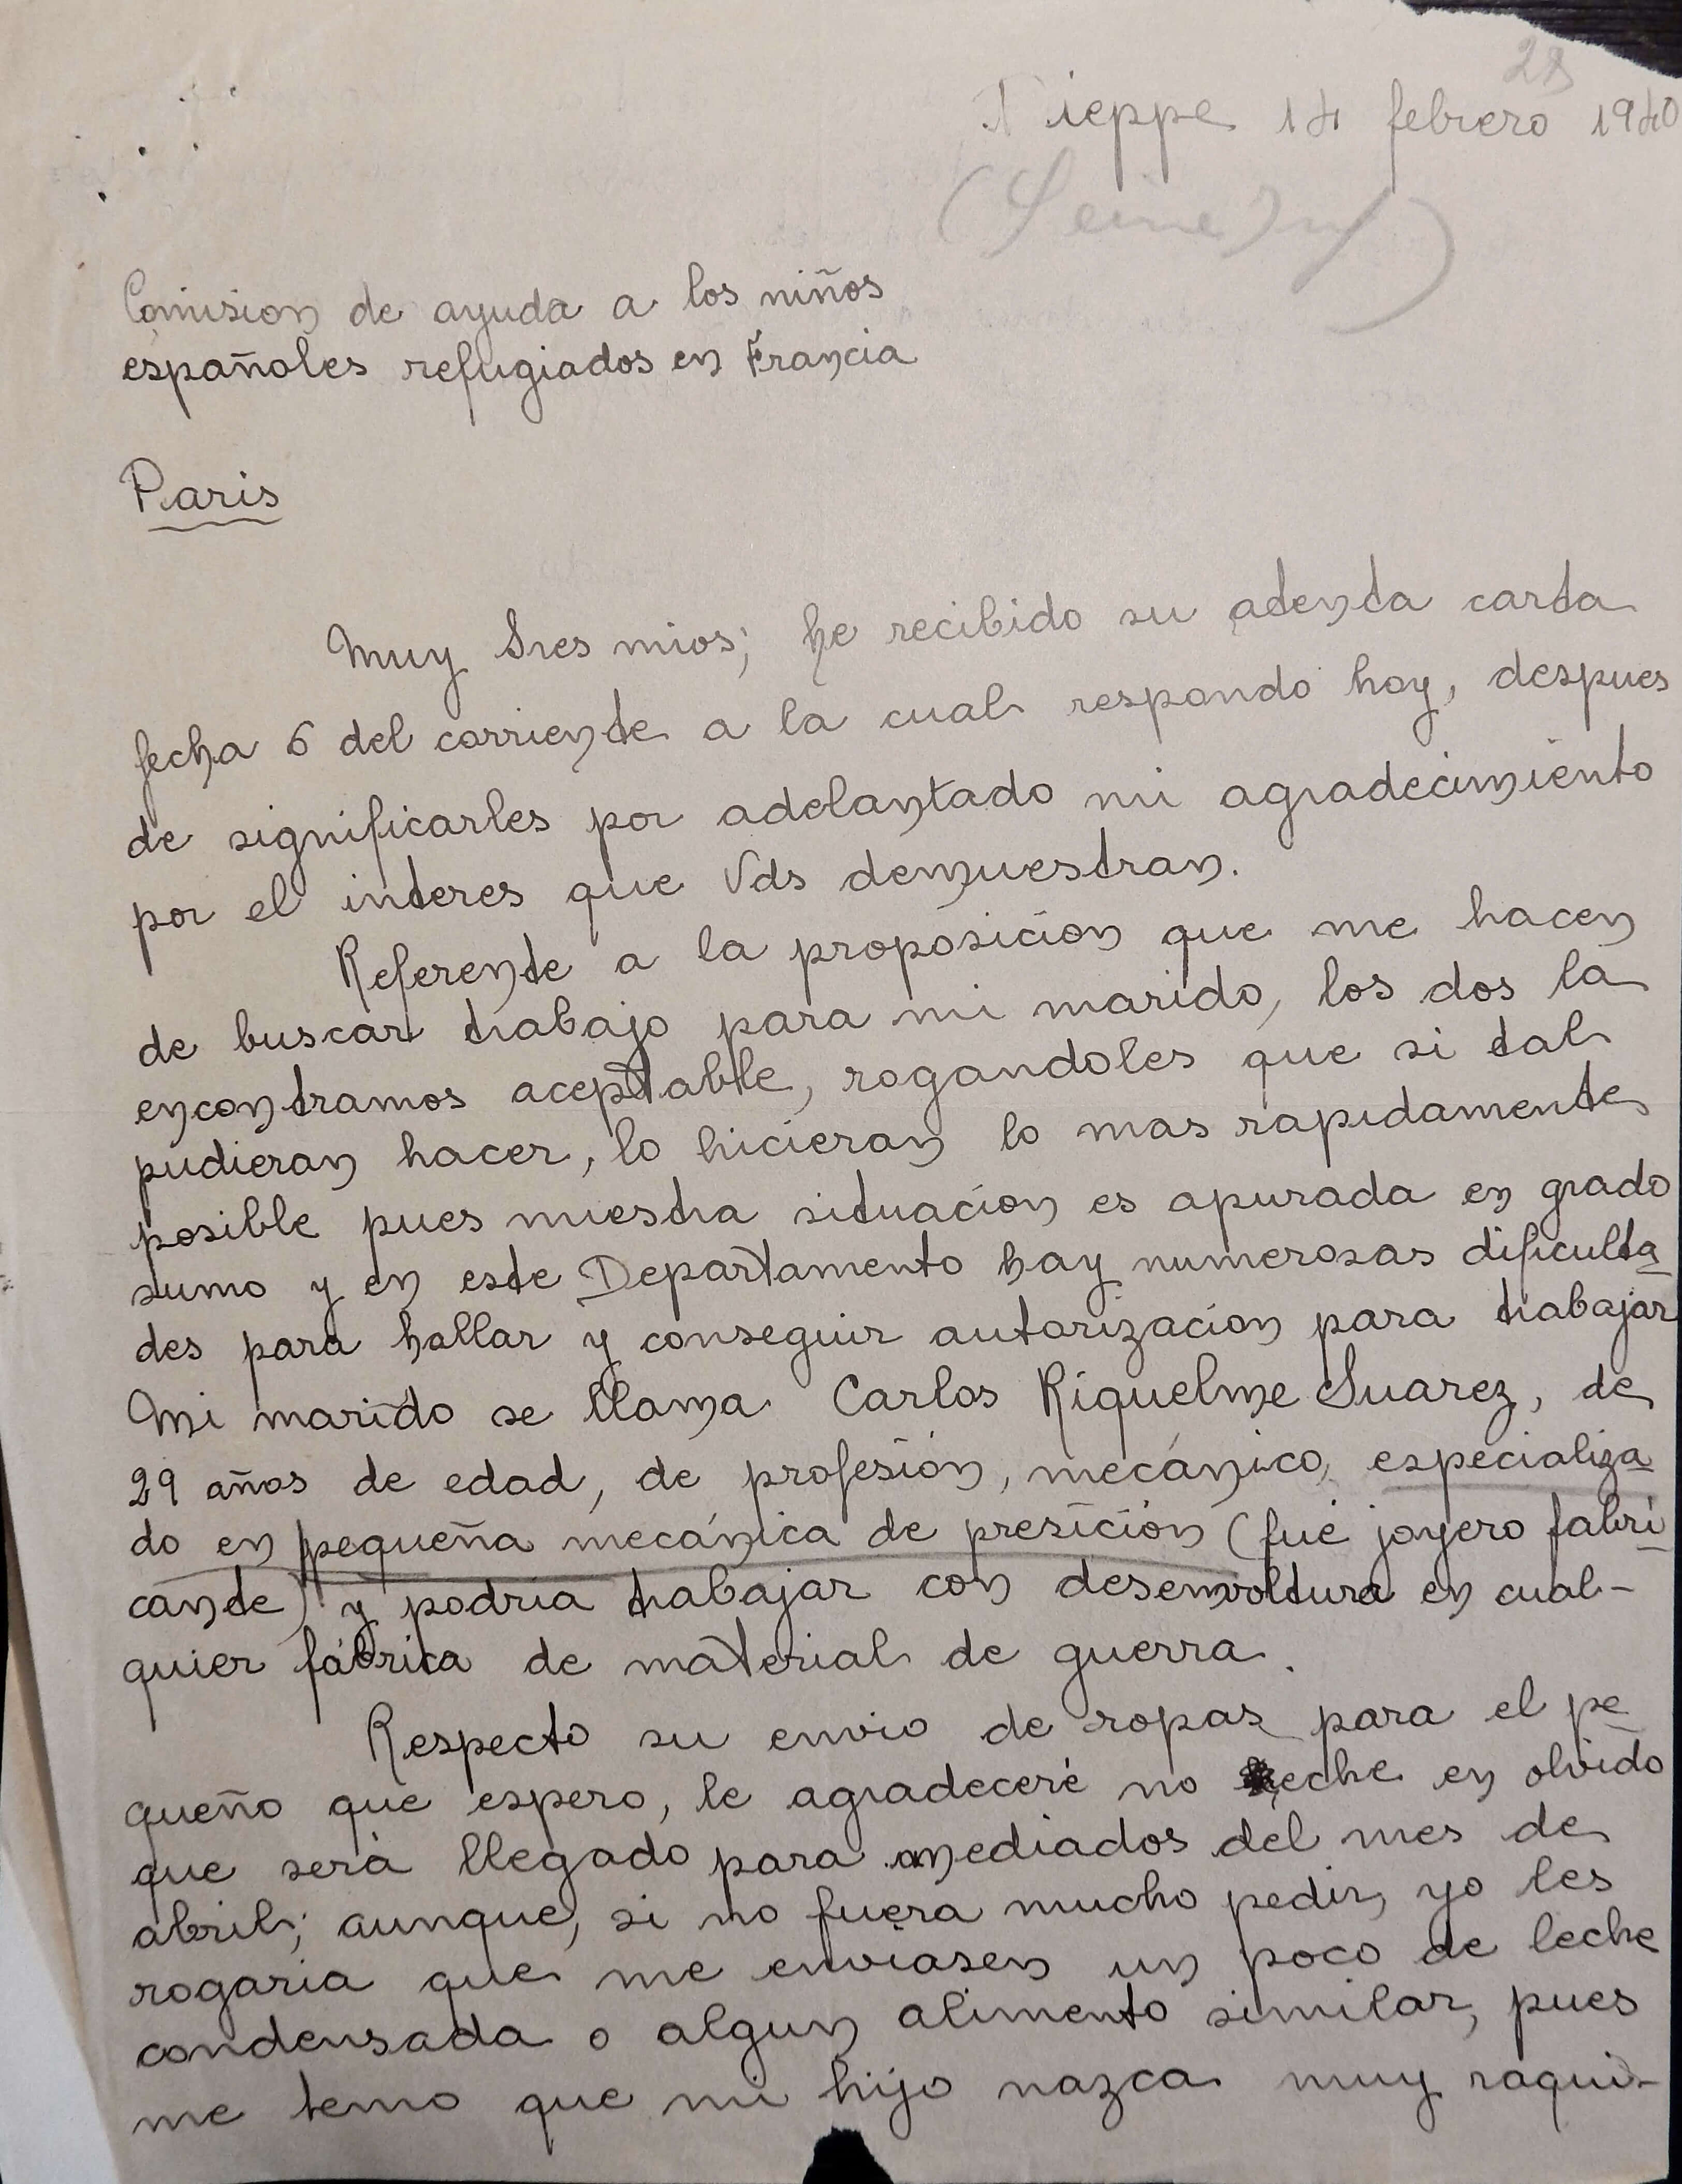 28
Dieppe 14 febrero 1940
(Seine Inf)
Comision de ayuda a los niños
españoles refugiados en Francia
Paris
Muy Sres mios; he recibido su atenta carta
fecha 6 del corriente a la cual respondo hoy, despues
de significarles por adelantado mi agradecimiento
por el interes que Vds demuestran.
Referente a la proposicion que me hacen
de buscar trabajo para mi marido, los dos la
encontramos aceptable, rogandoles que si tal
pudieran hacer, lo hicieran lo mas rapidamente
posible pues nuestra situacion es apurada en grado
sumo y en este Departamento hay numerosas dificulta
des para hallar y conseguir autorizacion para trabajar
Mi marido se llama Carlos Riquelme Suarez, de
29 años de edad, de profesión, mecánico, especializa
do en pequeña mecánica de presición (fué joyero fabri
cante) y podria trabajar con desenvoltura en cual-
quier fábrica de material de guerra.
Respecto su envio de ropas para el pe
queño que espero, le agradeceré no eche en olvido
que será llegado para mediados del mes de
abril; aunque, si no fuera mucho pedir, yo les
rogaria que me enviasen un poco de leche
condensada o algun alimento similar, pues
me temo que mi hijo nazca muy raqui-